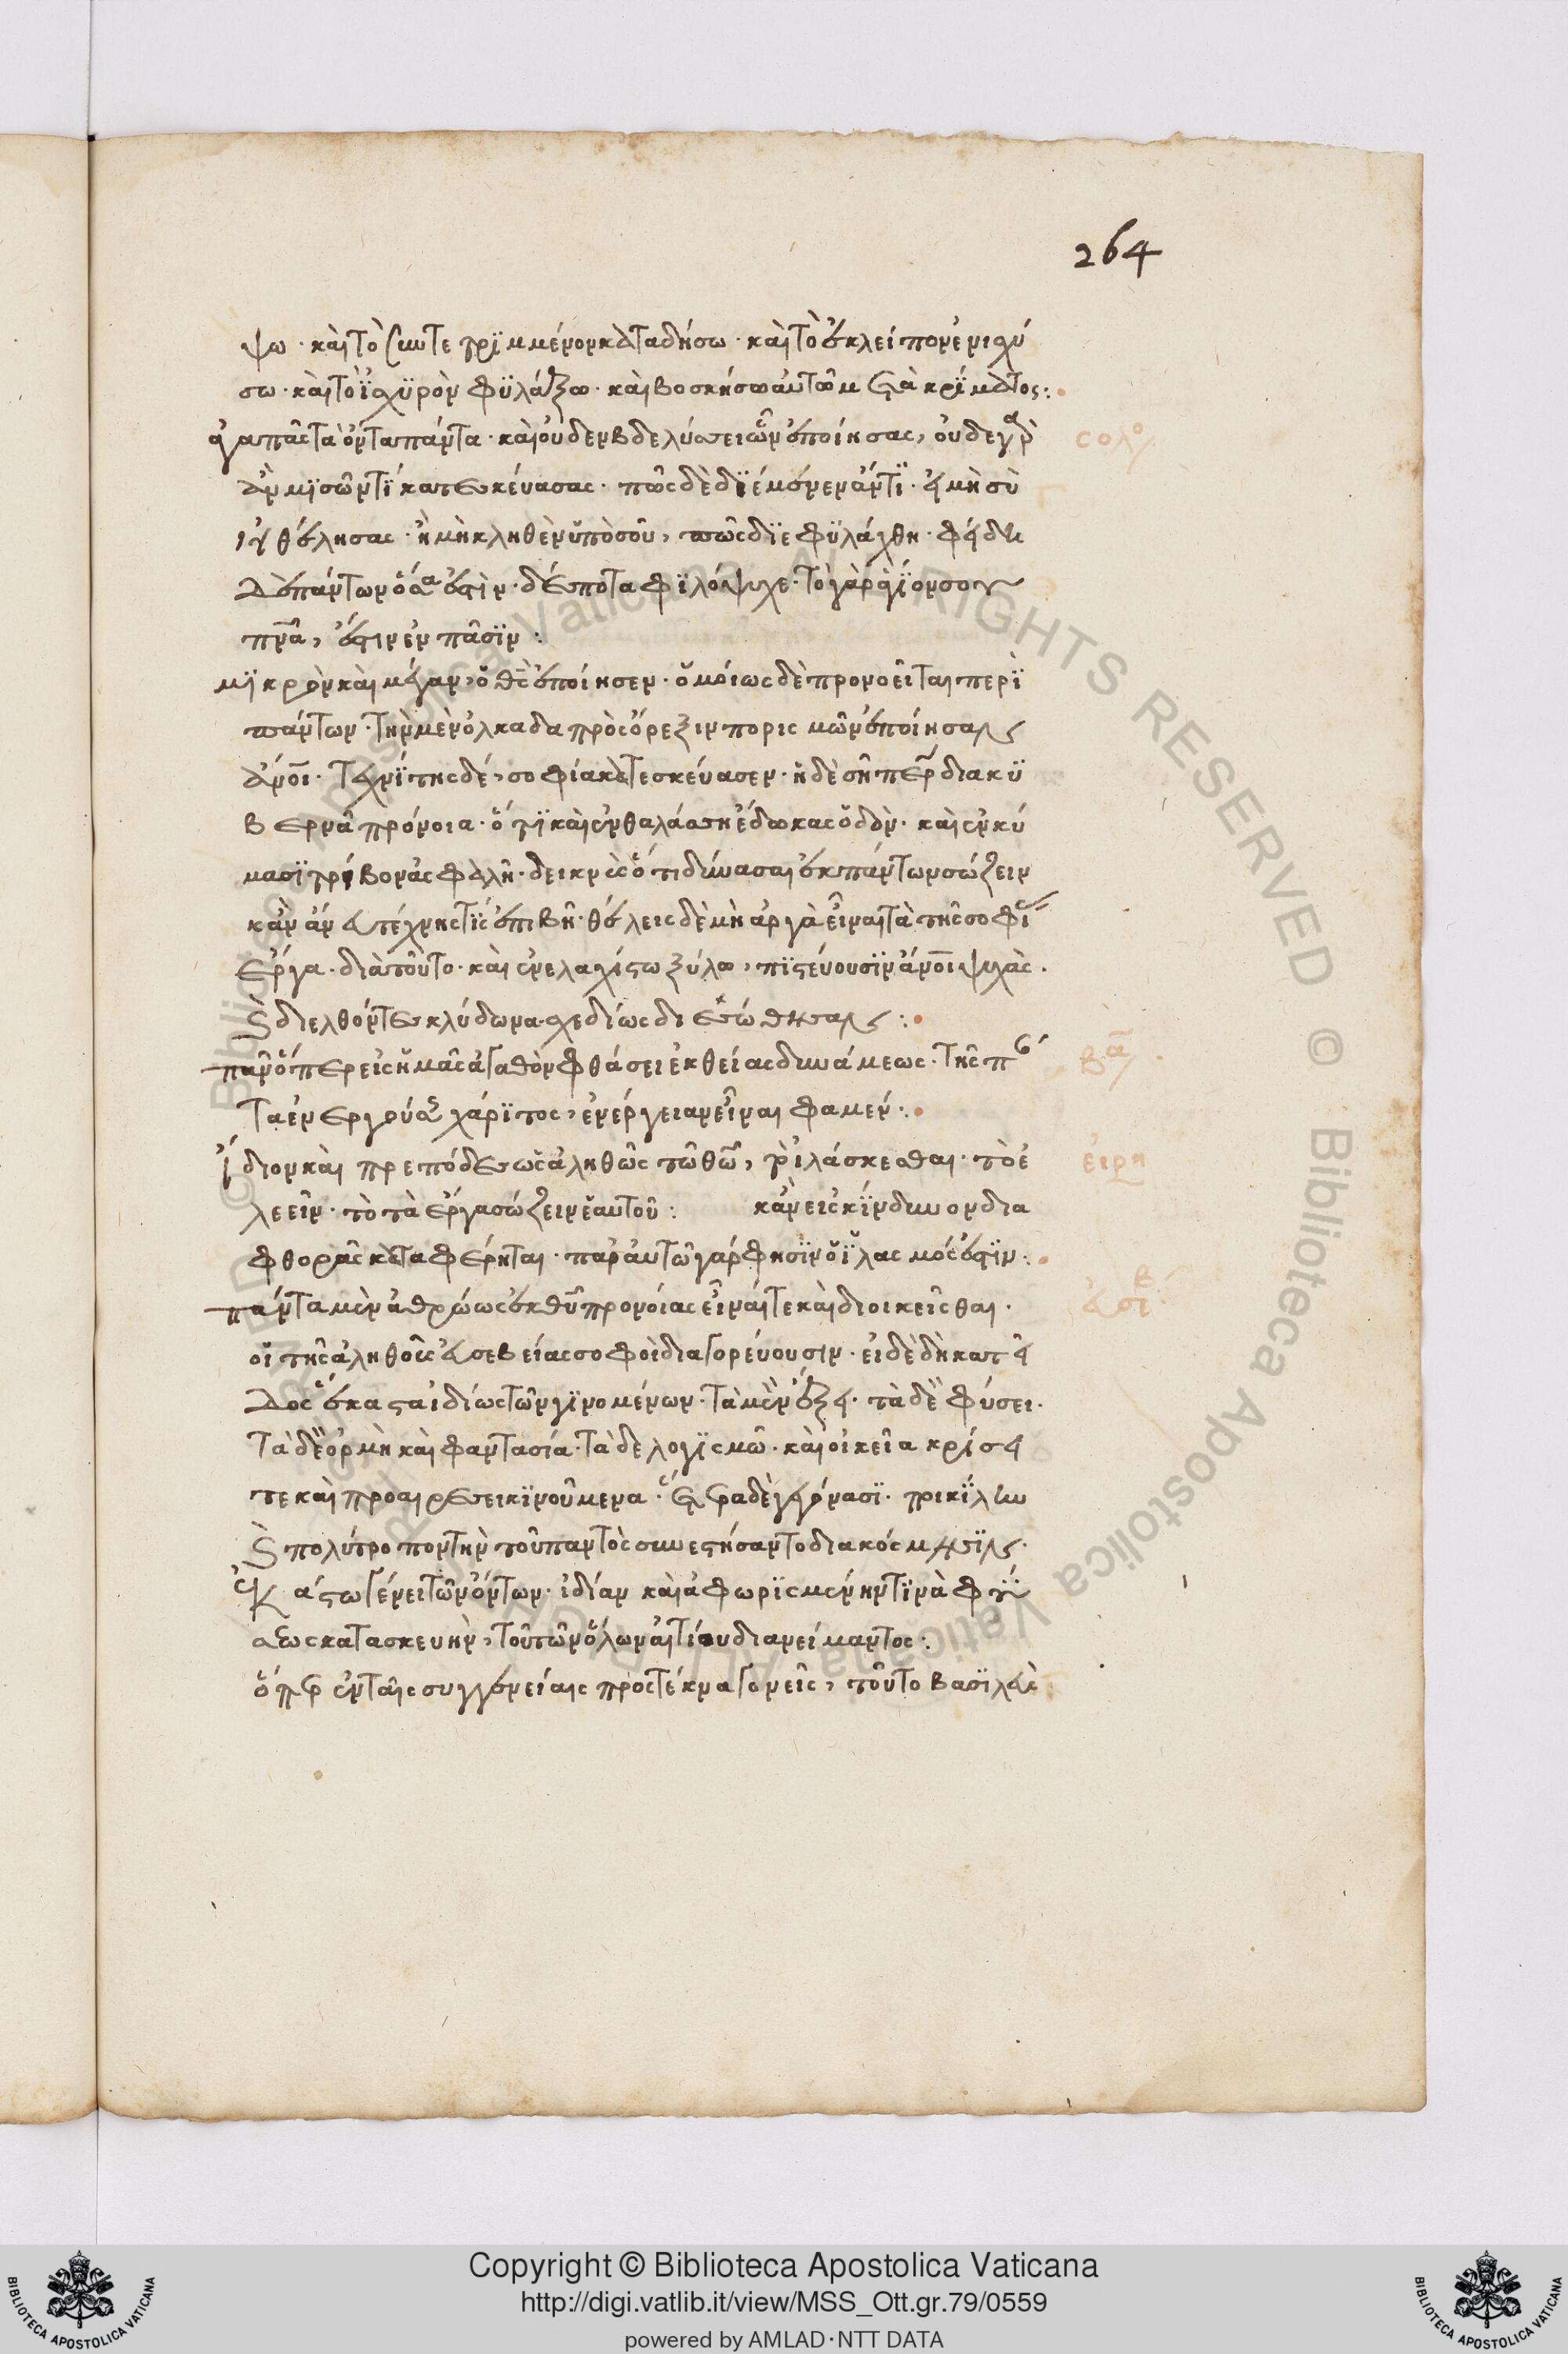 264
ψω · καὶ τὸ συντετριμμένον καταδήσω · καὶ τὸ ἐκλεῖπον ἐνισχύ
σω · καὶ τὸ ἰσχυρὸν φυλάξω · καὶ βοσκήσω αὐτῶ μετὰ κρίματος :
ἀγαπᾶς τὰ ὄντα πάντα · καὶ οὐδὲν βδελύσσει ὧν ἐποίησας, οὐδὲ γὰρ
ἂν μισῶν τί κατεσκεύασας · πῶς δὲ διέμεινεν ἄν τι · εἰ μὴ σὺ
ἠθέλησας · ἢ μὴ κληθὲν ὑπὸ σοῦ, πῶς διεφυλάχθη · φείδη
δὲ πάντων ὅσα ἐστὶν · δέσποτα φιλόψυχε · τὸ γὰρ ἅγιον σου
πνα, ἔστιν ἐν πᾶσιν :
μικρὸν καὶ μέγαν, ὁ θς ἐποίησεν · ὁμοίως δὲ προνοεῖται περὶ
πάντων · τὴν μὲν ὁλκάδα πρὸς ὄρεξιν πορισμῶν ἐποίησαν
ἄνοι · τεχνίτης δέ, σοφία κατεσκεύασεν · ἡ δὲ σὴ περ διακυ
βερνᾶ πρόνοια · ὅτι καὶ ἐν θαλάσση ἔδωκας ὁδὸν · καὶ ἐν κύ
μασι τρίβον ἀσφαλῆ · δεικνὺς ὅτι δύνασαι ἐκ πάντων σώζειν
κἂν ἄνευ τέχνης τὶς ἐπιβῆ · θέλεις δὲ μὴ ἀργὰ εἶναι τὰ τῆς σοφί
ἔργα · διὰ τοῦτο · καὶ ἐν ἐλαχίστω ξύλω, πιστεύουσιν ἄνοι ψυχὰς ·
καὶ διελθόντες κλύδωνα · σχεδίως διεσώθησαν :
πᾶν ὅπερ εἰς ἡμᾶς ἀγαθὸν φθάσει ἐκ θείας δυνάμεως · τῆς π
τα ἐνεργούσης χάριτος, ἐνέργειαν εἶναι φαμέν :
Ἴδιον καὶ πρεπόδες ὡς ἀληθῶς τῶ θῶ, τὸ ἱλάσκεσθαι · τὸ ἐ
λεεῖν · τὸ τὰ ἔργα σώζειν ἑαυτοῦ : κἂν εἰς κίνδυνον δια
φθορᾶς καταφέρηται · παρ αὐτῶ γάρ φησὶν ὁ ἱλασμός ἐστιν :
πάντα μὲν ἀθρόως ἐκ θυ προνοίας εἶναί τε καὶ διοικεῖσθαι ·
οἱ τῆς ἀληθοῦς εὐσεβείας σοφοὶ διαγορεύουσιν · εἰ δὲ δὴ κατ εἶ
δος ἕκαστα ἰδίως τῶν γινομένων · τὰ μὲν ἕξει · τὰ δὲ φύσει ·
τὰ δὲ ὁρμῆ καὶ φαντασία · τὰ δὲ λογισμῶ · καὶ οἰκεῖα κρίσει
τε καὶ προαιρέσει κινούμενα · ἕτερα δὲ γεγόνασι · ποικίλην
καὶ πολύτροπον τὴν τοῦ παντὸς συνεστήσαντο διακόσμησιν ·
ἑκάστω γένει τῶν ὄντων · ἰδίαν καὶ ἀφωρισμένην τινὰ φύ
σεως κατασκευὴν, τοῦ τῶν ὅλων αἰτίου διανείμαντος :
ὅπερ ἐν ταῖς συγγενείαις πρὸς τέκνα γονεῖς, τοῦτο βασιλεὺς
σολο
βα
εἰρη
Copyright © Biblioteca Apostolica Vaticana
http://digi.vatlib.it/view/MSS_Ott.gr.79/0559
powered by AMLAD·NTT DATA
BIBLIOTECA APOSTOLICA VATICANA
BIBLIOTECA APOSTOLICA VATICANA